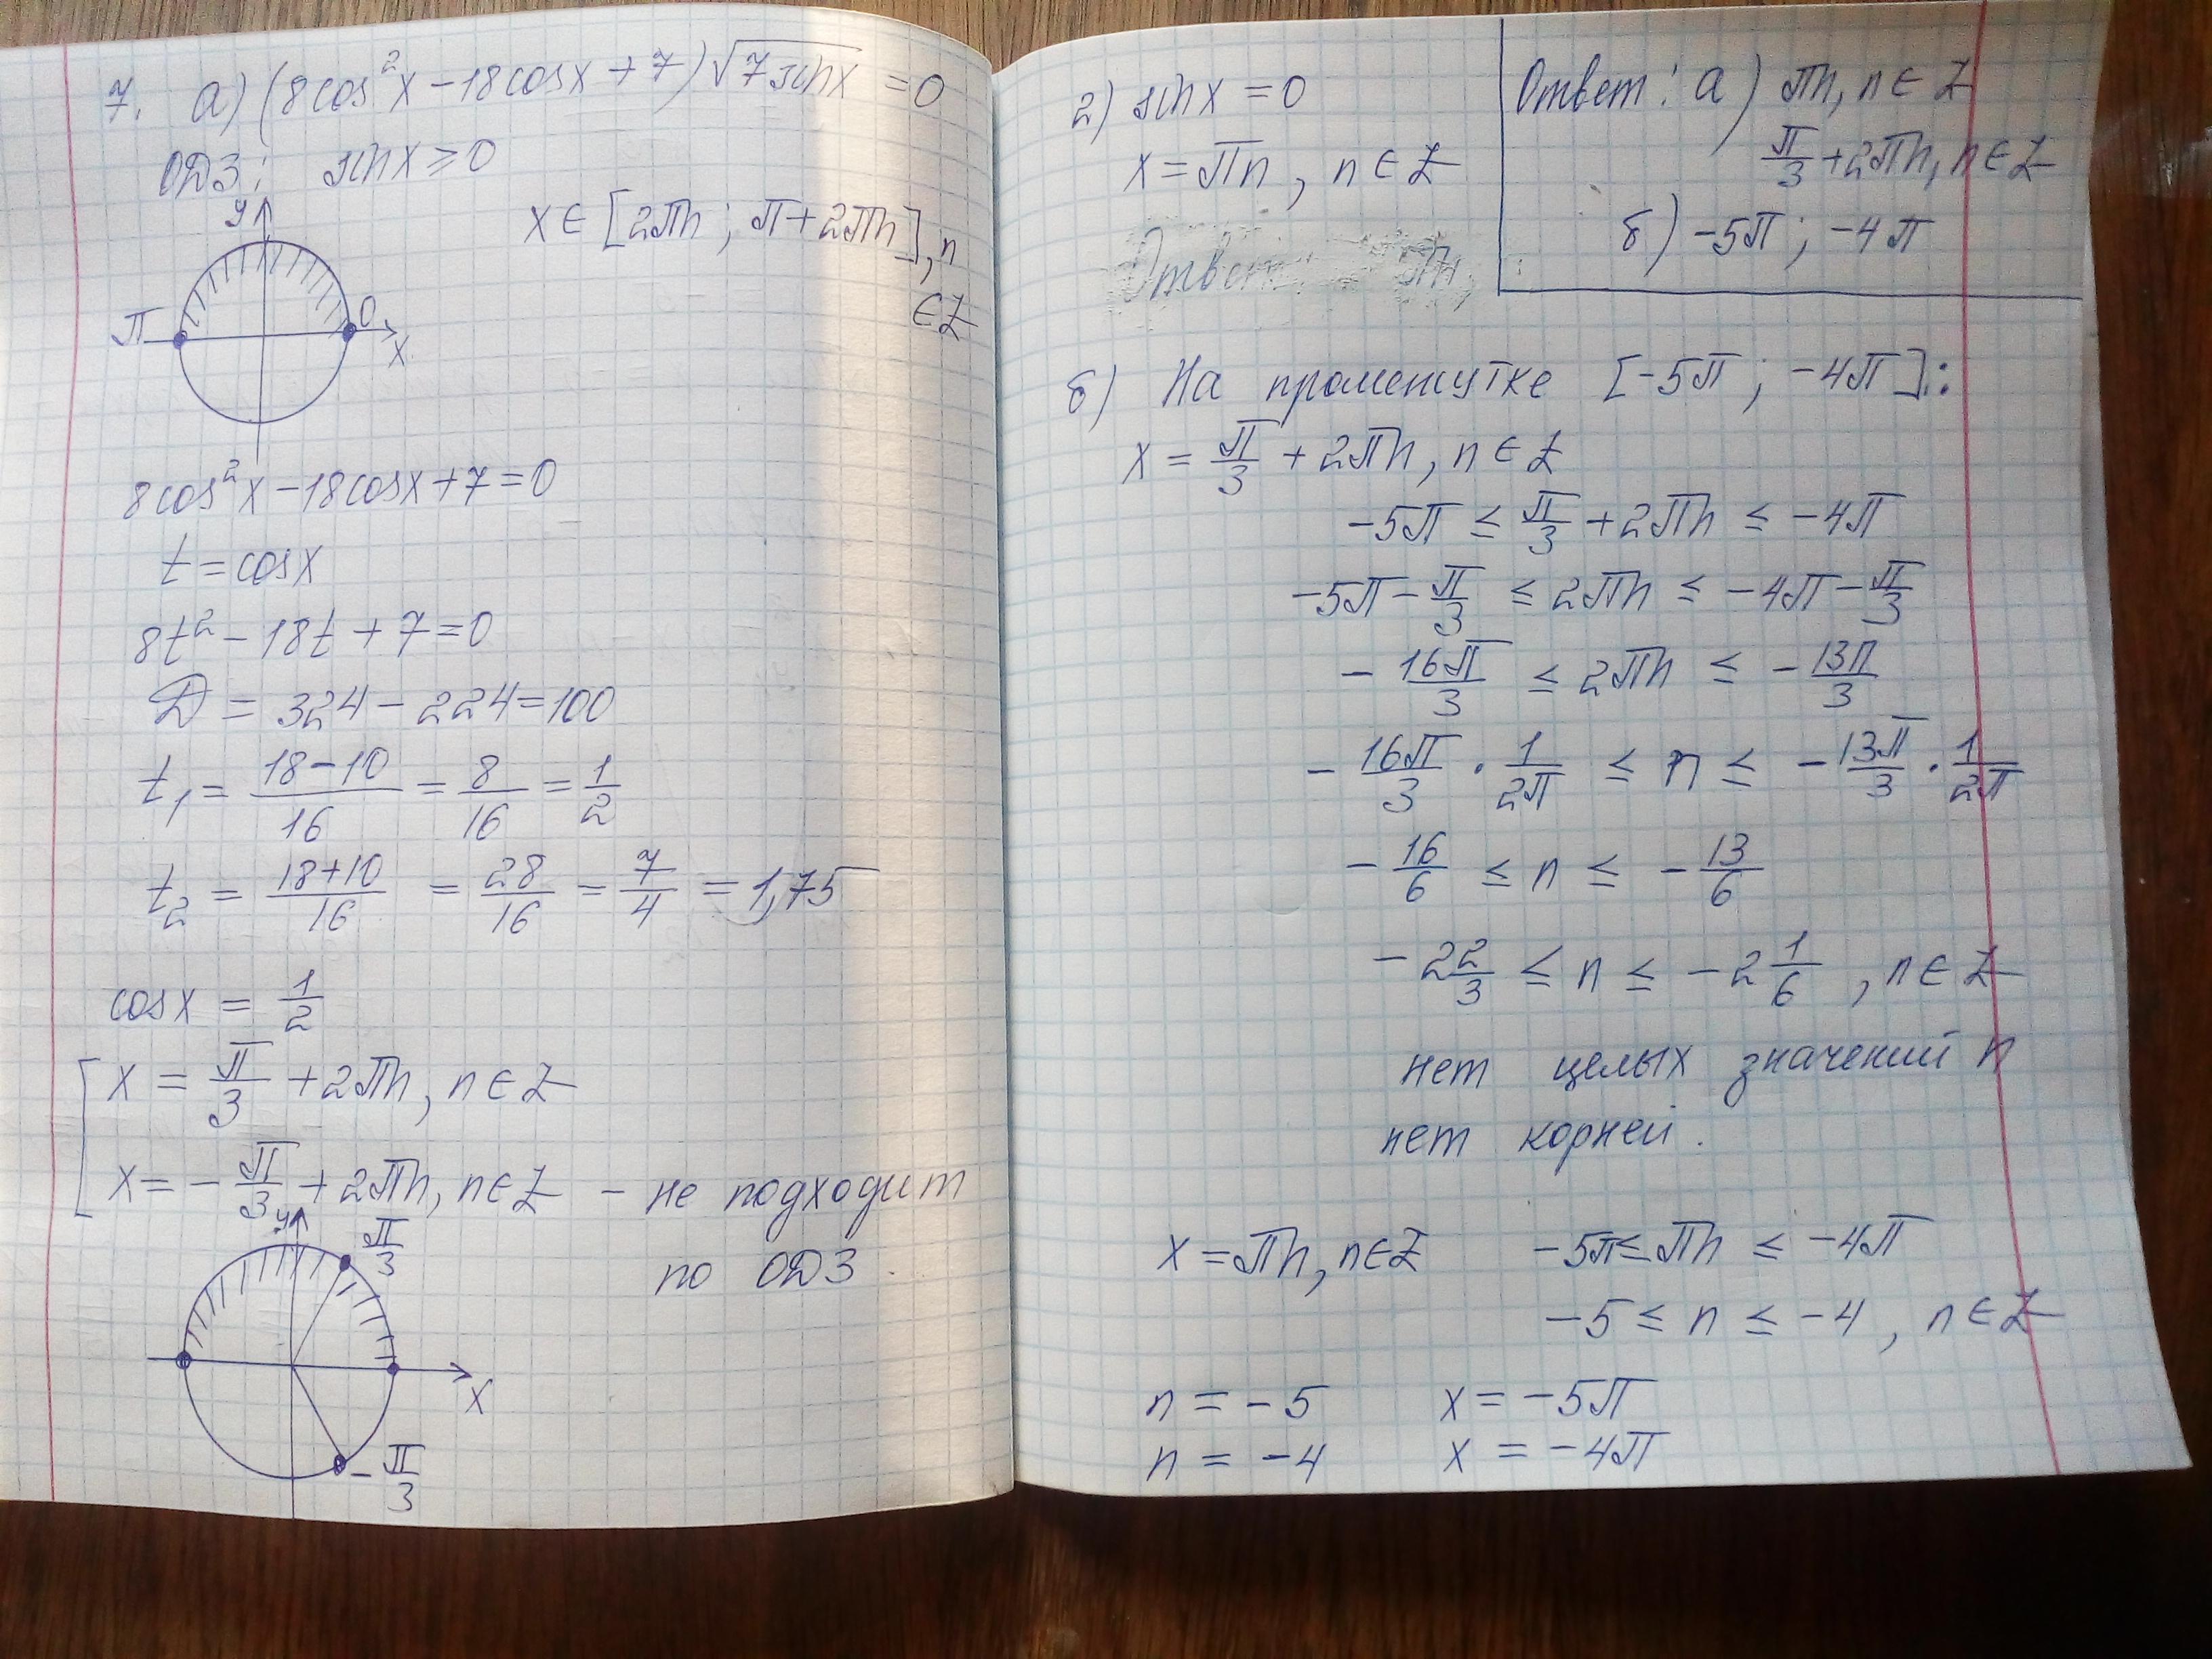 7. а) (8cos²x − 18cosx + 7)√7sinx = 0
ОДЗ: sinx ≥ 0
x ∈ [2πn; π + 2πn], n ∈ Z
y
π
0
x
8cos²x − 18cosx + 7 = 0
t = cosx
8t² − 18t + 7 = 0
D = 324 − 224 = 100
t₁ = (18 − 10)/16 = 8/16 = 1/2
t₂ = (18 + 10)/16 = 28/16 = 7/4 = 1,75
cosx = 1/2
x = π/3 + 2πn, n ∈ Z
x = −π/3 + 2πn, n ∈ Z − не подходит
по ОДЗ.
y
π/3
x
−π/3
2) sinx = 0
x = πn, n ∈ Z
Ответ: πn,
Ответ: а) πn, n ∈ Z
π/3 + 2πn, n ∈ Z
б) −5π; −4π
б) На промежутке [−5π; −4π]:
x = π/3 + 2πn, n ∈ Z
−5π ≤ π/3 + 2πn ≤ −4π
−5π − π/3 ≤ 2πn ≤ −4π − π/3
−16π/3 ≤ 2πn ≤ −13π/3
−16π/3 · 1/2π ≤ n ≤ −13π/3 · 1/2π
−16/6 ≤ n ≤ −13/6
−2 2/3 ≤ n ≤ −2 1/6, n ∈ Z
нет целых значений n
нет корней.
x = πn, n ∈ Z −5π ≤ πn ≤ −4π
−5 ≤ n ≤ −4, n ∈ Z
n = −5 x = −5π
n = −4 x = −4π